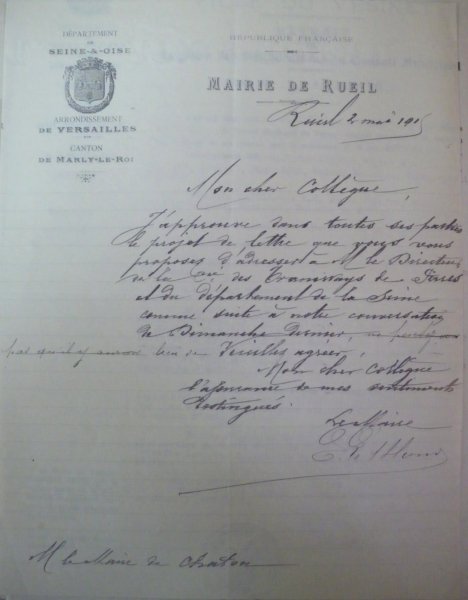 DÉPARTEMENT
DE
SEINE-&-OISE
ARRONDISSEMENT
DE VERSAILLES
CANTON
DE MARLY-LE-ROI
RÉPUBLIQUE FRANÇAISE
MAIRIE DE RUEIL
Rueil 2 mai 191
Mon cher Collègue,
J'approuve dans toutes ses parties
le projet de lettre que vous vous
proposez d'adresser à M. le Directeur
de la Cie des Tramways de
et du département de la Seine
comme suite à notre conversation
de Dimanche dernier,
pas qu'il y lieu de Veuillez agréer,
Mon cher Collègue
l'assurance de mes sentiments
distingués.
Le Maire
M. le Maire de Chatou